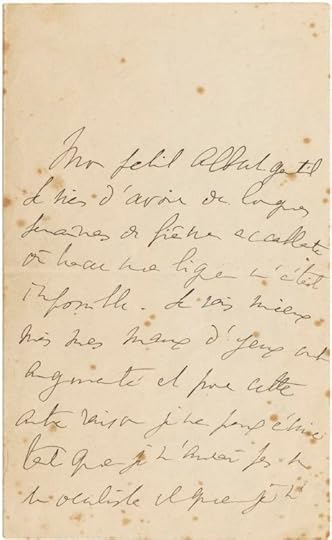 Mon petit Albert gentil
Je viens d'avoir de longues
semaines de fièvre accablante
où tracer une ligne m'était
impossible. Je vais mieux
mais mes maux d'yeux ont
augmenté et pour cette
autre raison je ne peux écrire
tant que je n'aurai pas vu
un oculiste et que je n'